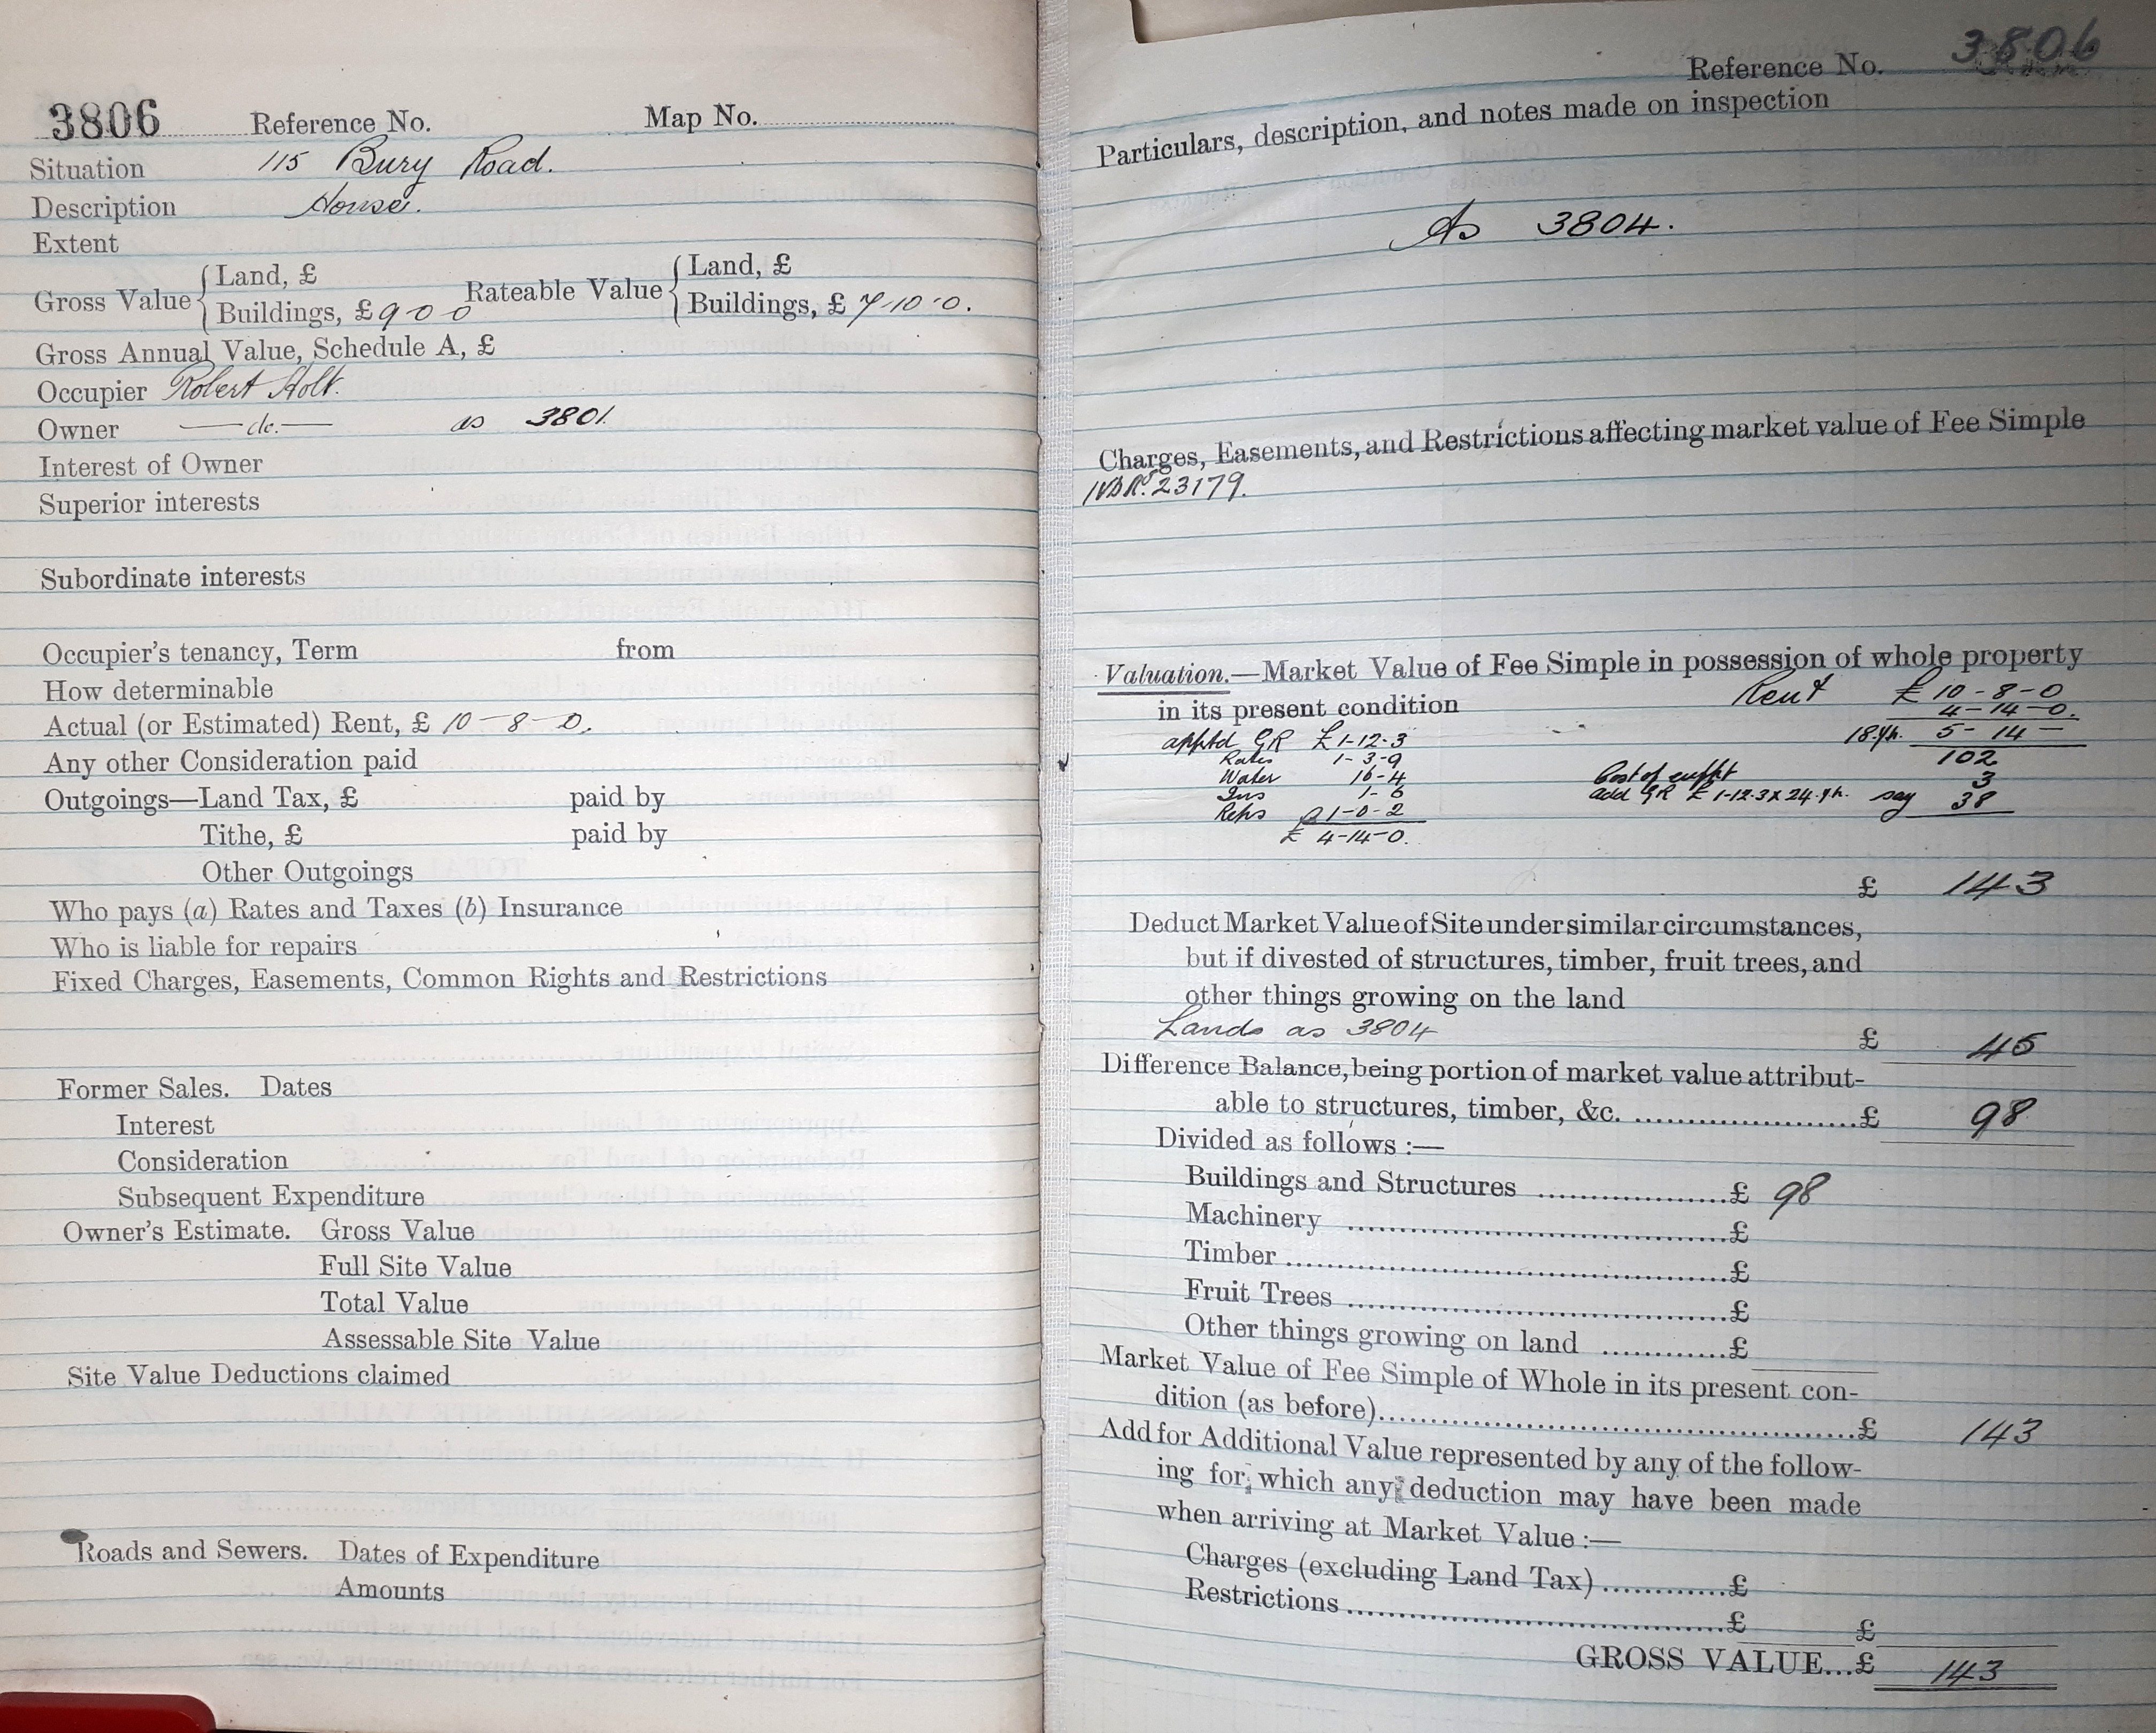 3806 Reference No. Map No.
Situation 115 Bury Road.
Description House.
Extent
Gross Value { Land, £ Rateable Value { Land, £
Buildings, £ 9-0-0 Buildings, £ 7-10-0.
Gross Annual Value, Schedule A, £
Occupier Robert Holt.
Owner —do.— as 3801.
Interest of Owner
Superior interests
Subordinate interests
Occupier's tenancy, Term from
How determinable
Actual (or Estimated) Rent, £ 10-8-0.
Any other Consideration paid
Outgoings—Land Tax, £ paid by
Tithe, £ paid by
Other Outgoings
Who pays (a) Rates and Taxes (b) Insurance
Who is liable for repairs
Fixed Charges, Easements, Common Rights and Restrictions
Former Sales. Dates
Interest
Consideration
Subsequent Expenditure
Owner's Estimate. Gross Value
Full Site Value
Total Value
Assessable Site Value
Site Value Deductions claimed
Roads and Sewers. Dates of Expenditure
Amounts
Reference No. 3806
Particulars, description, and notes made on inspection
As 3804.
Charges, Easements, and Restrictions affecting market value of Fee Simple
23179.
Valuation.—Market Value of Fee Simple in possession of whole property
in its present condition Rent £ 10-8-0
4-14-0.
apptd GR £1-12-3 18 yh. 5-14-
Rates 1-3-9 102
Water 16-4 Cost of 3
Ins 1-6 add GR £1-12-3 x 24 yh. say 38
Reps 1-0-2
£ 4-14-0.
£ 143
Deduct Market Value of Site under similar circumstances,
but if divested of structures, timber, fruit trees, and
other things growing on the land
Lands as 3804 £ 45
Difference Balance, being portion of market value attribut-
able to structures, timber, &c. £ 98
Divided as follows :—
Buildings and Structures £ 98
Machinery £
Timber £
Fruit Trees £
Other things growing on land £
Market Value of Fee Simple of Whole in its present con-
dition (as before) £ 143
Add for Additional Value represented by any of the follow-
ing for which any deduction may have been made
when arriving at Market Value :—
Charges (excluding Land Tax) £
Restrictions £ £
GROSS VALUE...£ 143